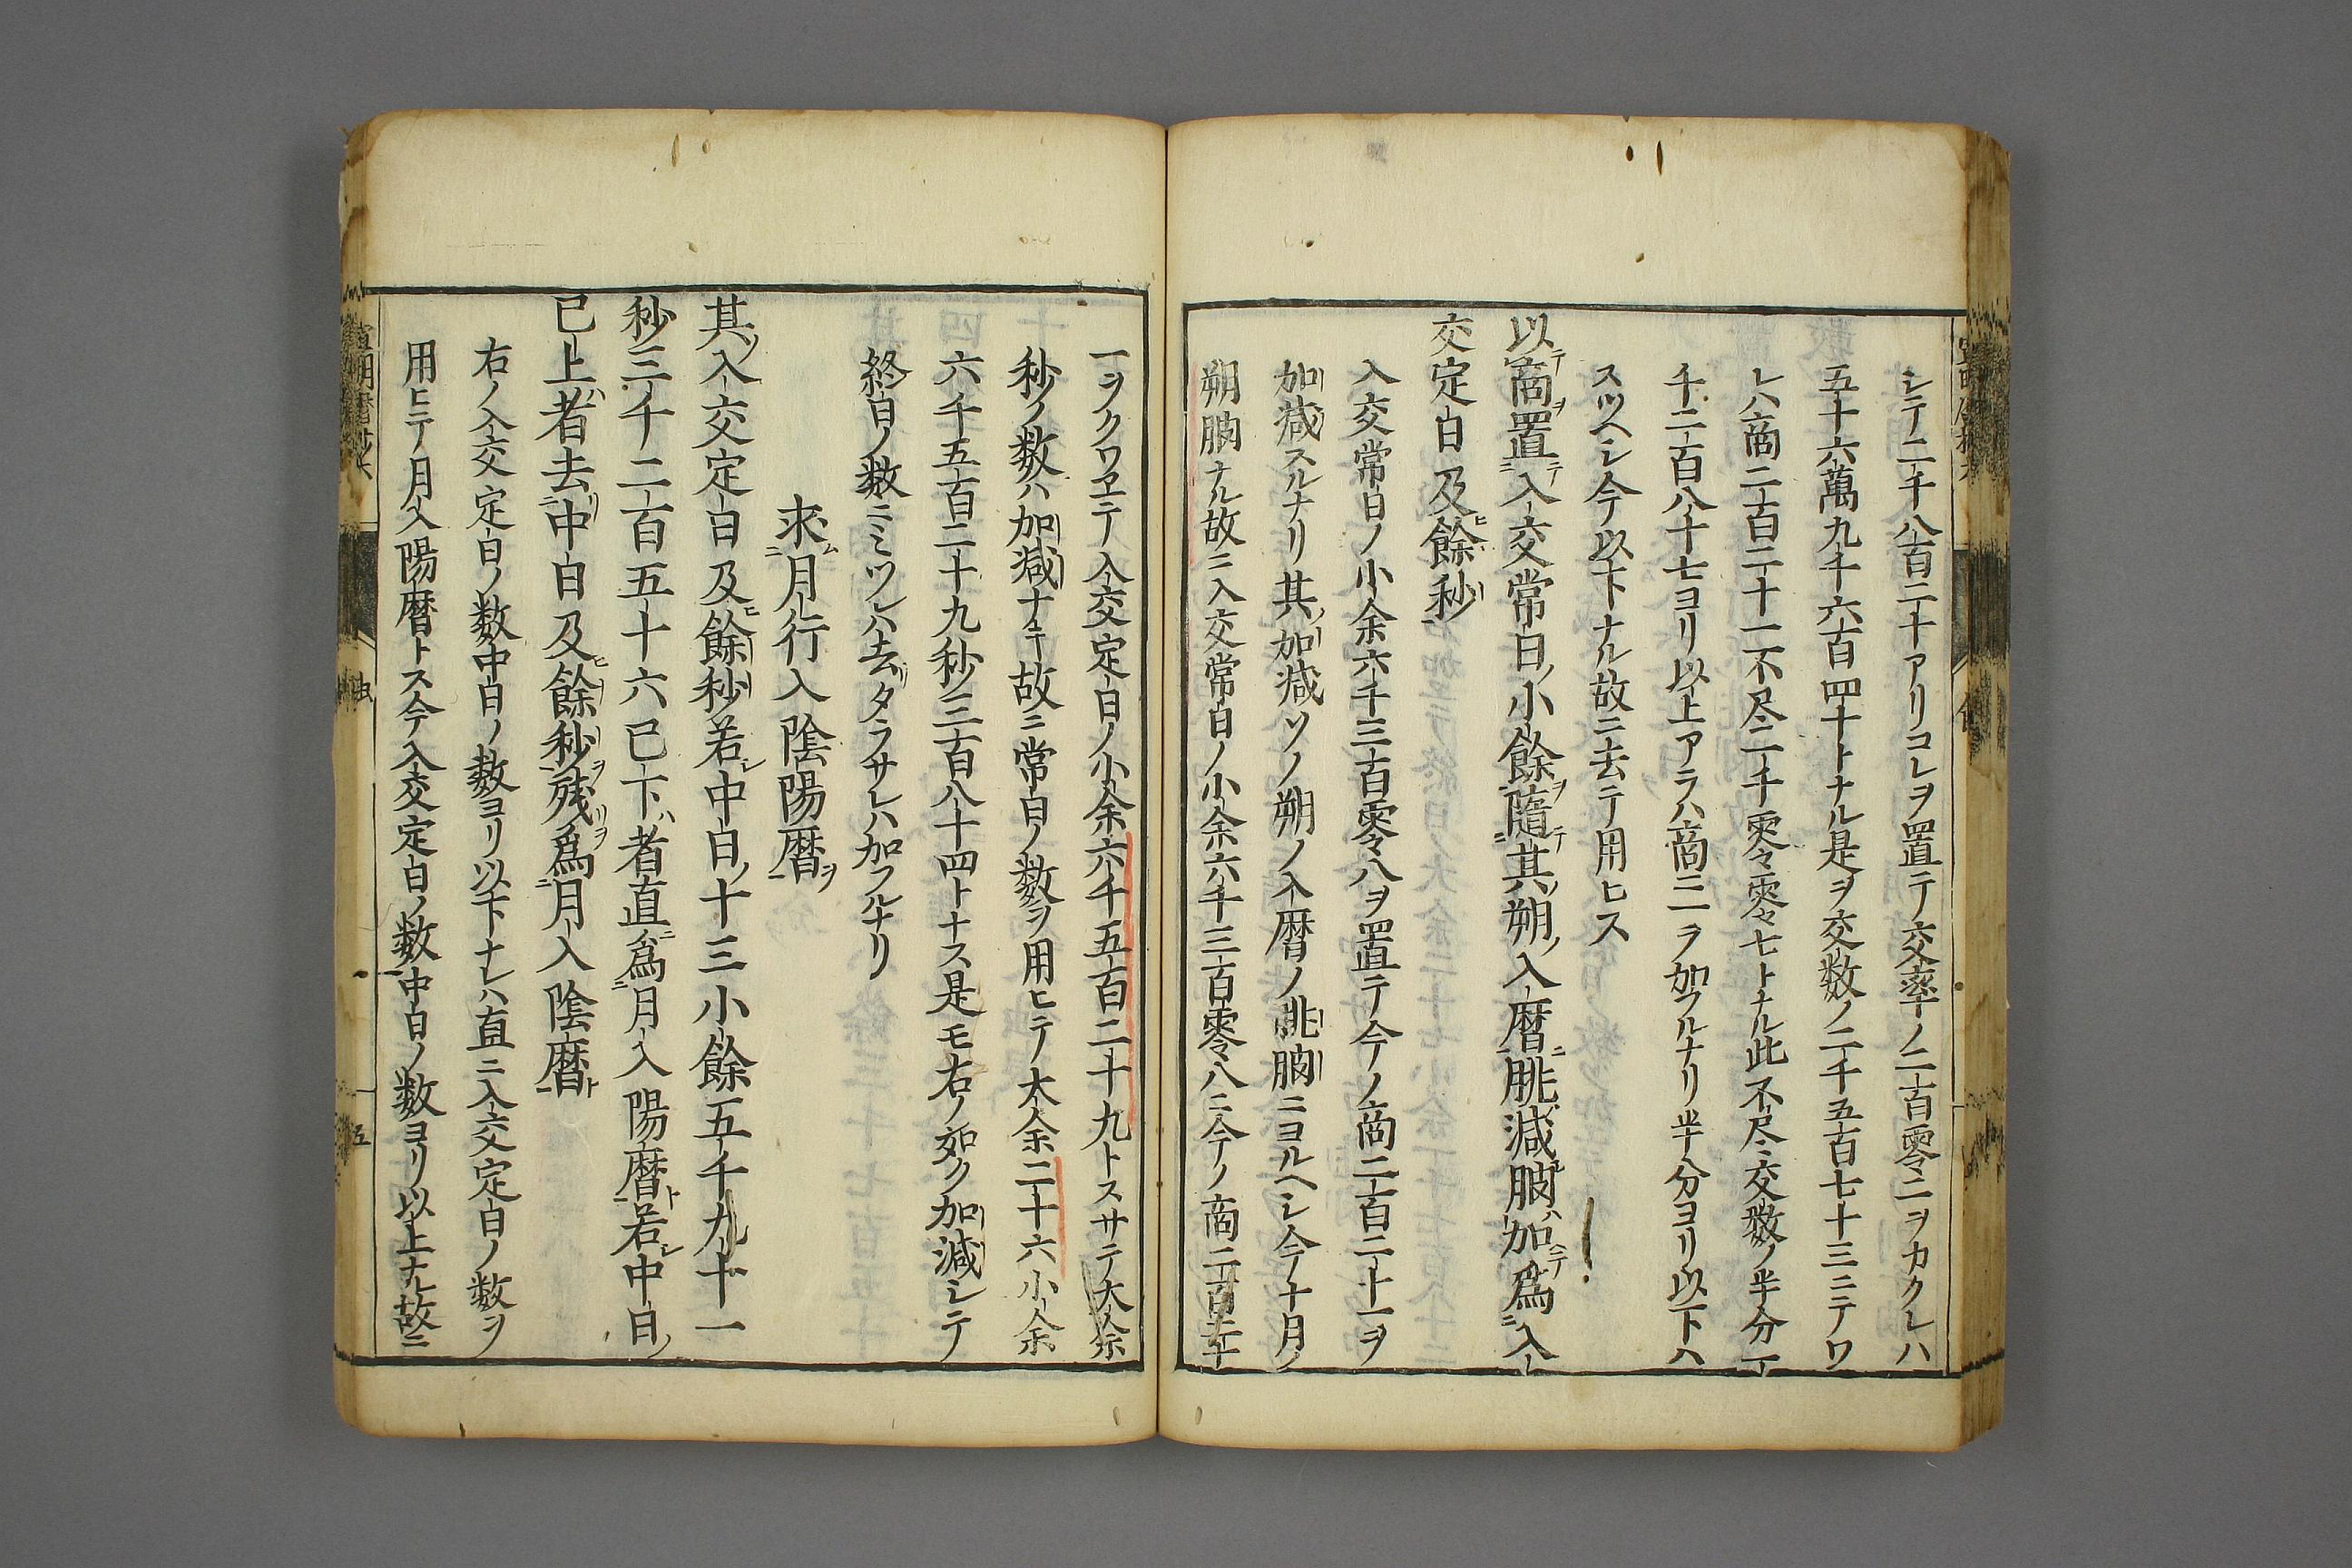 シテ二千八百二十アリコレヲ置テ交率ノ二百零二ヲカクレハ
五十六萬九千六百四十トナル是ヲ交数ノ二千五百七十三ニテワ
レハ商二百二十一不尽二千零々零々七トナル此不尽交数ノ半分一
千二百八十七ヨリ以上アラハ商ニ一ヲ加フルナリ半分ヨリ以下ハ
スツヘシ今以下ナル故ニ去テ用ヒス
以商置入交常日小餘隨其朔入暦朓減朒加爲入
交定日及餘秒
入交常日ノ小余六千三百零々八ヲ置テ今ノ商二百二十一ヲ
加減スルナリ其加減ソノ朔ノ入暦ノ朓朒ニヨルヘシ今十月ノ
朔朒ナル故ニ入交常日ノ小余六千三百零々八ニ今ノ商二百二十
一ヲクワヱテ入交定日ノ小余六千五百二十九トスサテ大余
秒ノ数ハ加減ナキ故ニ常日ノ数ヲ用ヒテ大余二十六小余
六千五百二十九秒三百八十四トナス是モ右ノ如ク加減シテ
終日ノ数ニミツレハ去タラサレハ加フルナリ
求月行入陰陽暦
其入交定日及餘秒若中日十三小餘五千九十一
秒三千二百五十六已下者直爲月入陽暦若中日
已上者去中日及餘秒残爲月入陰暦
右ノ入交定日ノ数中日ノ数ヨリ以下ナレハ直ニ入交定日ノ数ヲ
用ヒテ月入陽暦トス今入交定日ノ数中日ノ数ヨリ以上ナル故ニ
五